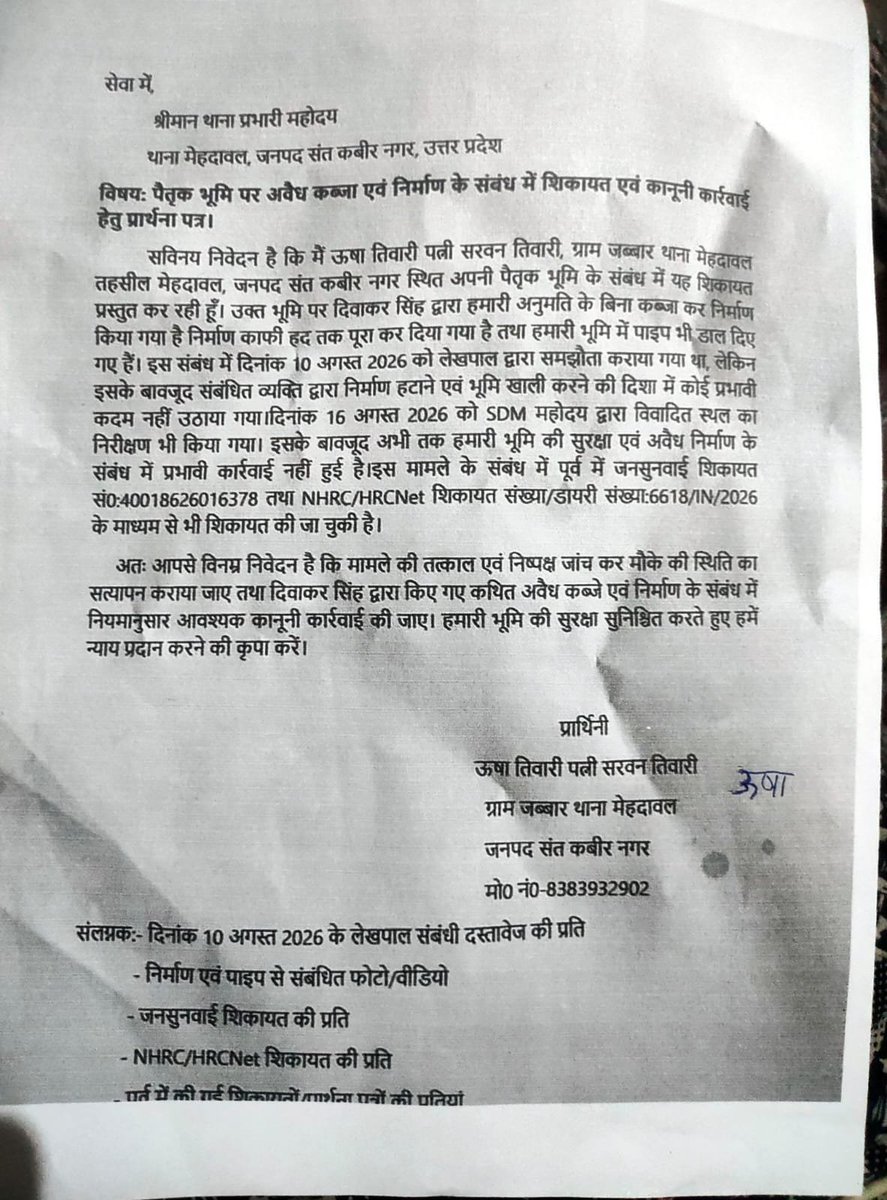 सेवा में,
श्रीमान थाना प्रभारी महोदय
थाना मेहदावल, जनपद संत कबीर नगर, उत्तर प्रदेश
विषय: पैतृक भूमि पर अवैध कब्जा एवं निर्माण के संबंध में शिकायत एवं कानूनी कार्रवाई
हेतु प्रार्थना पत्र।
सविनय निवेदन है कि मैं ऊषा तिवारी पत्नी सरवन तिवारी, ग्राम जब्बार थाना मेहदावल
तहसील मेहदावल, जनपद संत कबीर नगर स्थित अपनी पैतृक भूमि के संबंध में यह शिकायत
प्रस्तुत कर रही हूँ। उक्त भूमि पर दिवाकर सिंह द्वारा हमारी अनुमति के बिना कब्जा कर निर्माण
किया गया है निर्माण काफी हद तक पूरा कर दिया गया है तथा हमारी भूमि में पाइप भी डाल दिए
गए हैं। इस संबंध में दिनांक 10 अगस्त 2026 को लेखपाल द्वारा समझौता कराया गया था, लेकिन
इसके बावजूद संबंधित व्यक्ति द्वारा निर्माण हटाने एवं भूमि खाली करने की दिशा में कोई प्रभावी
कदम नहीं उठाया गया।दिनांक 16 अगस्त 2026 को SDM महोदय द्वारा विवादित स्थल का
निरीक्षण भी किया गया। इसके बावजूद अभी तक हमारी भूमि की सुरक्षा एवं अवैध निर्माण के
संबंध में प्रभावी कार्रवाई नहीं हुई है।इस मामले के संबंध में पूर्व में जनसुनवाई शिकायत
सं0:40018626016378 तथा NHRC/HRCNet शिकायत संख्या/डायरी संख्या:6618/IN/2026
के माध्यम से भी शिकायत की जा चुकी है।
अतः आपसे विनम्र निवेदन है कि मामले की तत्काल एवं निष्पक्ष जांच कर मौके की स्थिति का
सत्यापन कराया जाए तथा दिवाकर सिंह द्वारा किए गए कथित अवैध कब्जे एवं निर्माण के संबंध में
नियमानुसार आवश्यक कानूनी कार्रवाई की जाए। हमारी भूमि की सुरक्षा सुनिश्चित करते हुए हमें
न्याय प्रदान करने की कृपा करें।
प्रार्थिनी
ऊषा तिवारी पत्नी सरवन तिवारी
ऊषा
ग्राम जब्बार थाना मेहदावल
जनपद संत कबीर नगर
मो0 नं0-8383932902
संलग्नक:- दिनांक 10 अगस्त 2026 के लेखपाल संबंधी दस्तावेज की प्रति
- निर्माण एवं पाइप से संबंधित फोटो/वीडियो
- जनसुनवाई शिकायत की प्रति
- NHRC/HRCNet शिकायत की प्रति
- पूर्व में की गई शिकायतों/प्रार्थना पत्रों की प्रतियां